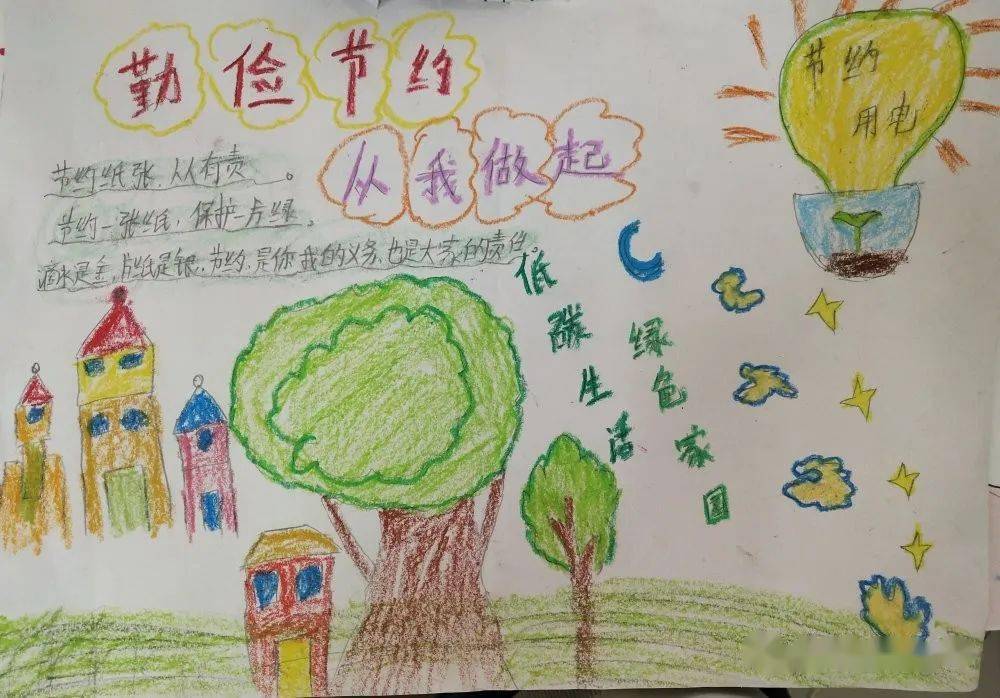 勤俭节约
从我做起
节约用电
节约纸张,从有责。
节约一张纸,保护一片绿。
滴水是金,片纸是银,节约,是你我的义务,也是大家的责任。
低碳生活
绿色家园